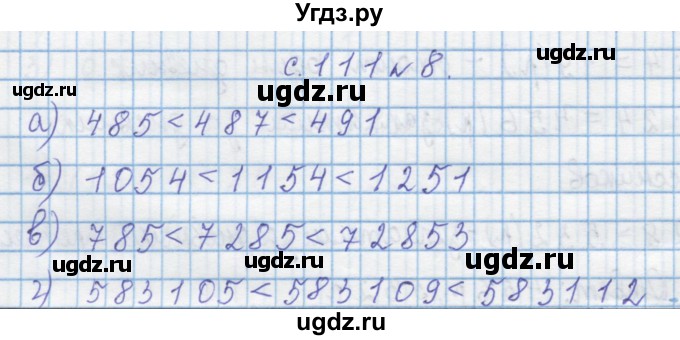 Угдз.ру
с.111 №8.
ugdz.ru
ugdz.ru
а) 485<487<491
ugdz.ru
б) 1054<1154<1251
в) 785<7285<72853
ugdz.ru
ugdz.ru
ugdz.ru
г) 583105<583109<583112
ugdz.ru